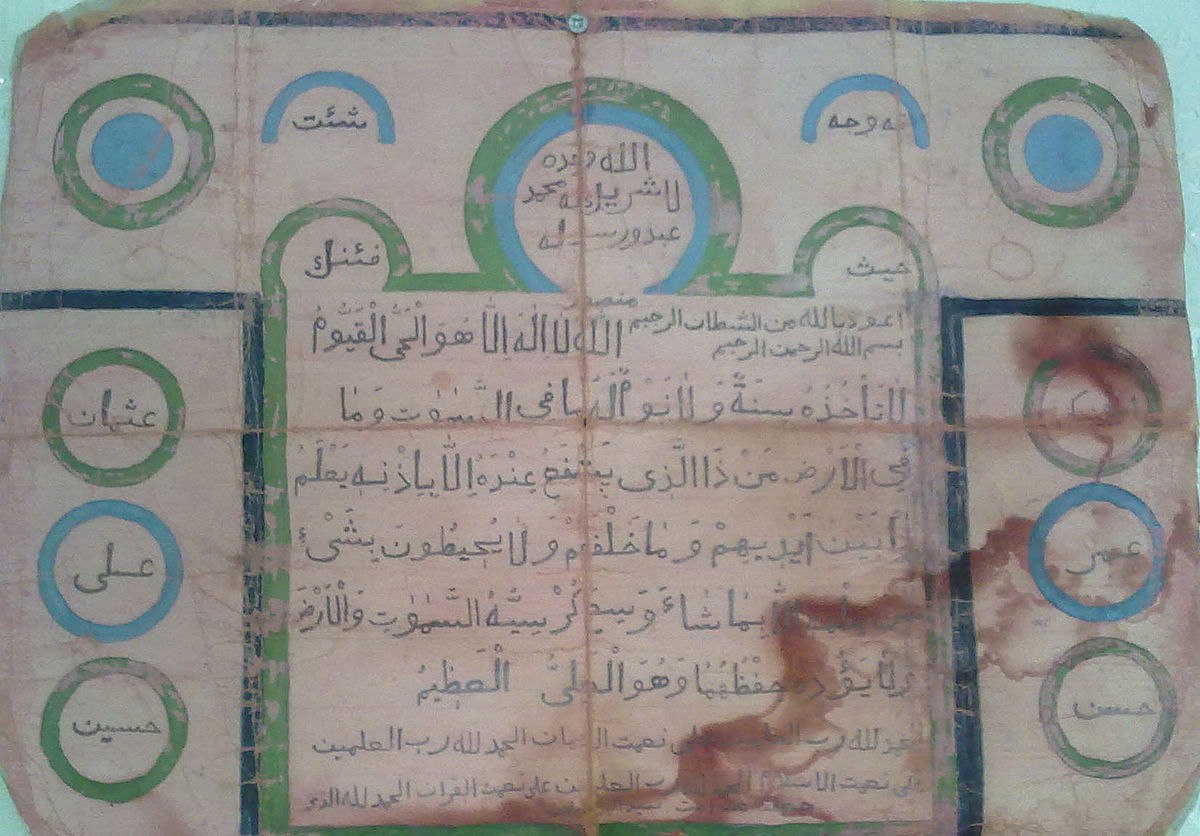 شئت
الله وحده
لا شريك له محمد
عبد ورسوله
حيث
فئنك
اعوذ بالله من الشطان الرجيم
بسم الله الرحمن الرحيم
اَللهُ لا اِلٰهَ اِلَّا هُوَ الْحَىُّ الْقَيُّومُ
لَا تَأْخُذُهُ سِنَةٌ وَلَا نَوْمٌ لَهُ مَا فِى السَّمٰوَاتِ وَمَا
فِي الْاَرْضِ مَنْ ذَا الَّذِى يَشْفَعُ عِنْدَهُ اِلَّا بِاِذْنِهِ يَعْلَمُ
مَا بَيْنَ اَيْدِيهِمْ وَمَا خَلْفَهُمْ وَلَا يُحِيطُونَ بِشَىْءٍ
بِمَا شَاءَ وَسِعَ كُرْسِيُّهُ السَّمٰوَاتِ وَالْاَرْضَ
وَلَا يَؤُدُهُ حِفْظُهُمَا وَهُوَ الْعَلِىُّ الْعَظِيمُ
الحمد لله رب العلمين على نعمت الايمان الحمد لله رب العلمين
على نعمت الاسلام الحمد لله رب العلمين على نعمت القران الحمد لله الذى
عثمان
عمر
على
حسن
حسين